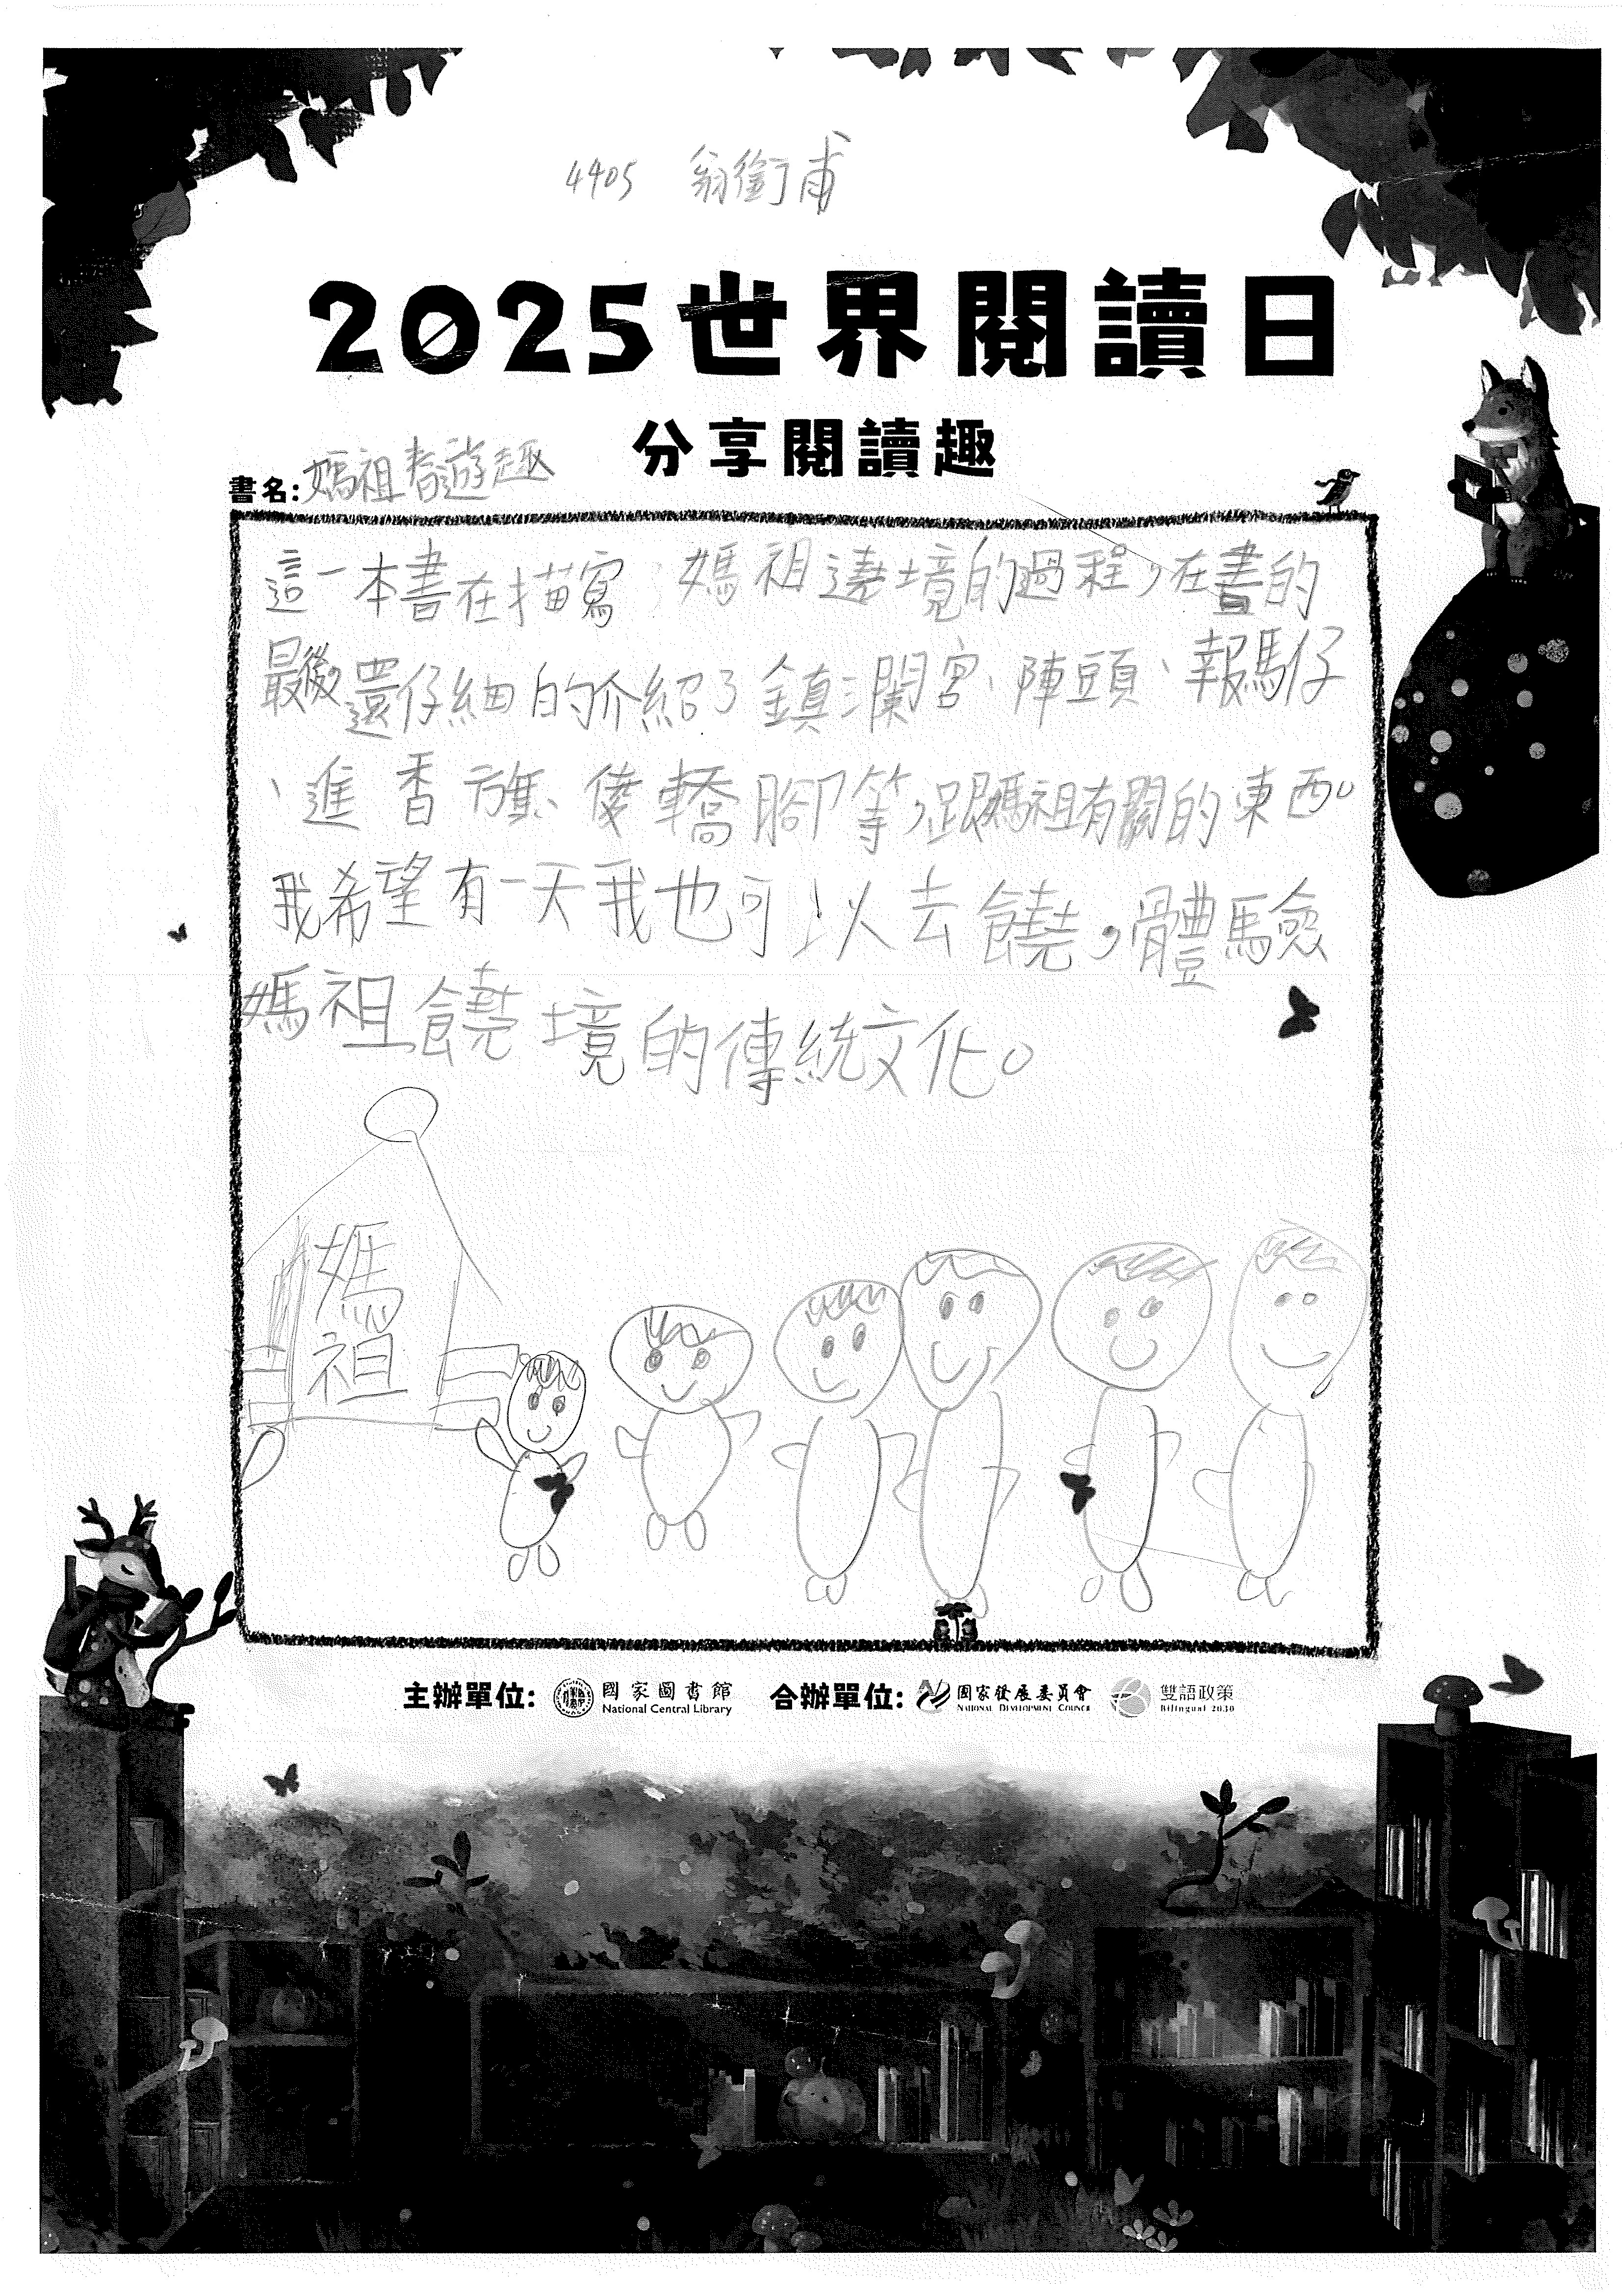 4405 翁銜甫
2025世界閱讀日
分享閱讀趣
書名:媽祖春遊趣
這一本書在描寫 媽祖遶境的過程,在書的
最後還仔細的介紹了鎮瀾宮、陣頭、報馬仔
、進香旗、倭轎腳等,跟媽祖有關的東西。
我希望有一天我也可以去饒,體驗
媽祖饒境的傳統文化。
媽
祖
主辦單位: 國家圖書館 National Central Library 合辦單位: 國家發展委員會 NATIONAL DEVELOPMENT COUNCIL 雙語政策 Bilingual 2030